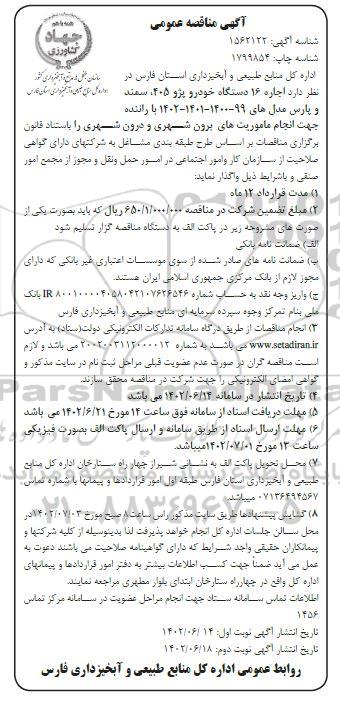 آگهی مناقصه عمومی
همه با هم
جهاد
کشاورزی
شناسه آگهی: ۱۵۶۲۱۲۲
شناسه چاپ: ۱۷۹۹۸۵۴
اداره کل منابع طبیعی و آبخیزداری اســتان فارس در
نظر دارد اجاره ۱۶ دستگاه خودرو پژو ۴۰۵، سمند
و پارس مدل های ۹۹-۱۴۰۰-۱۴۰۱-۱۴۰۲ با راننده
جهت انجام ماموریت های برون شــهری و درون شهری را باستناد قانون
برگزاری مناقصات بر اساس طرح طبقه بندی مشـاغل به شرکتهای دارای گواهی
صلاحیت از سـازمان کار وامور اجتماعی در امـور حمل ونقل و مجوز از مجمع امور
صنفی و باشرایط ذیل واگذار نماید:
۱) مدت قرارداد ۱۲ ماه
۲) مبلغ تضمین شرکت در مناقصه ۶۵۰/۱/۰۰۰/۰۰۰ ریال که باید بصورت یکی از
صورت های مشروحه زیر در پاکت الف به دستگاه مناقصه گزار تسلیم شود
الف) ضمانت نامه بانکی
ب) ضمانت نامه های صادر شـده از سوی موسسـات اعتباری غیر بانکی که دارای
مجوز لازم از بانک مرکزی جمهوری اسلامی ایران هستند.
ج) واریز وجه نقد به حساب شماره IR ۸۰۰۱۰۰۰۰۴۰۵۸۰۴۲۱۰۷۶۲۶۵۴۶ بانک
ملی بنام تمرکز وجوه سپرده سرمایه ای منابع طبیعی و آبخیزداری فارس
۳) انجام مناقصات از طریق درگاه سامانه تدارکات الکترونیکی دولت(ستاد) به آدرس
www.setadiran.ir می باشـد به شماره ۲۰۰۲۰۰۳۱۱۲۰۰۰۰۱۲ می باشد و لازم
است مناقصه گران در صورت عدم عضویت قبلی مراحل ثبت نام در سایت مذکور و
گواهی امضای الکترونیکی را جهت شرکت در مناقصه محقق سازند.
۴) تاریخ انتشار در سامانه ۱۴۰۲/۰۶/۱۴ می باشد
۵) مهلت دریافت اسناد از سامانه فوق ساعت ۱۴ مورخ ۱۴۰۲/۶/۲۱ می باشد
۶) مهلت ارسال اسناد از طریق سامانه و ارسال پاکت الف بصورت فیزیکی
ساعت ۱۳ مورخ ۱۴۰۲/۰۷/۰۱میباشد.
۷) محـل تحویل پاکت الف به نشـانی شیراز چهار راه سـتارخان اداره کل منابع
طبیعی و آبخیزداری استان فارس طبقه اول امور قراردادها و پیمانها با شماره تماس
۰۷۱۳۶۴۹۴۵۶۷ میباشد.
۸) گشایش پیشنهادها طریق سایت مذکور راس ساعت۸صبح مورخ ۱۴۰۲/۰۷/۰۳در
محل سـالن جلسات اداره کل انجام خواهد پذیرفت لذا بدینوسیله از کلیه شرکتها و
پیمانکاران حقیقی واجد شـرایط که دارای گواهینامه صلاحیت می باشند دعوت به
عمل می آید ضمناً جهت کسب اطلاعات بیشتر به دفتر امور قراردادها و پیمانهای
اداره کل واقع در چهارراه ستارخان ابتدای بلوار مطهری مراجعه نمایند.
اطلاعات تماس سـامانه ستاد جهت انجام مراحل عضویت در سـامانه مرکز تماس
۱۴۵۶
تاریخ انتشار آگهی نوبت اول: ۱۴ /۱۴۰۲/۰۶
تاریخ انتشار آگهی نوبت دوم: ۱۴۰۲/۰۶/۱۸
روابط عمومی اداره کل منابع طبیعی و آبخیزداری فارس